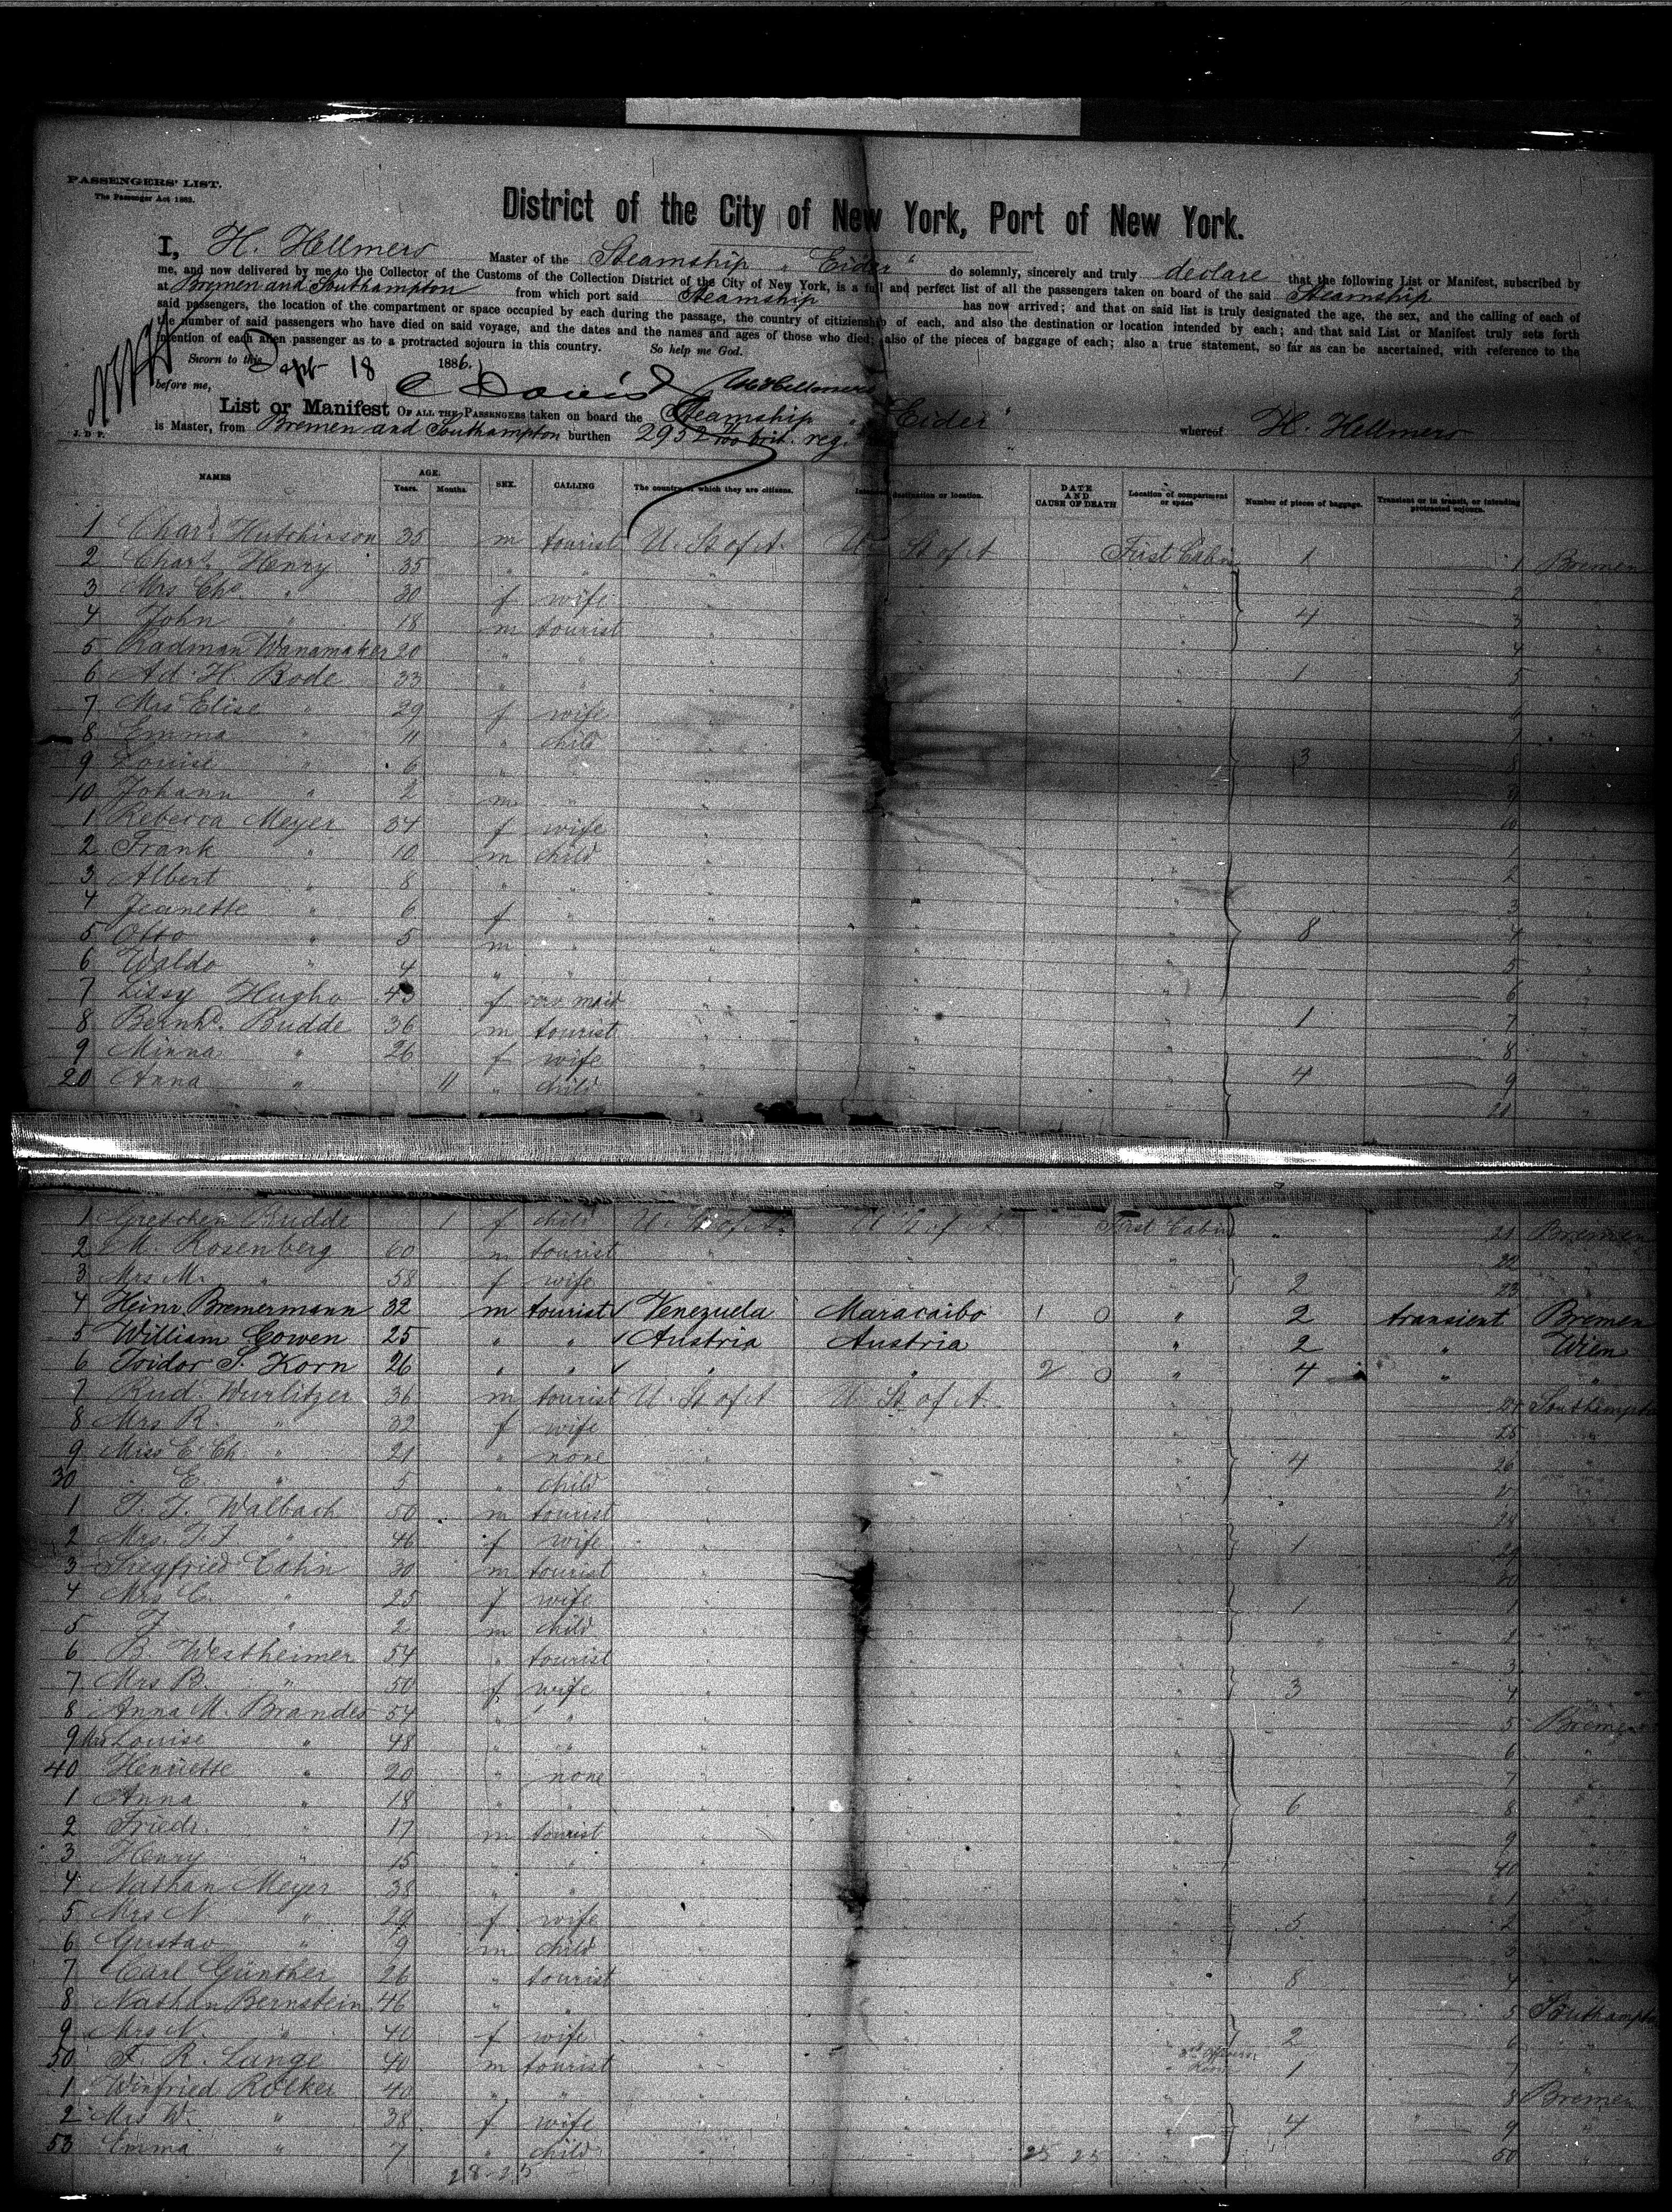 PASSENGERS' LIST.
The Passenger Act 1882.
District of the City of New York, Port of New York.
I, H. Hellmers Master of the Steamship "Eider" do solemnly, sincerely and truly declare that the following List or Manifest, subscribed by
me, and now delivered by me to the Collector of the Customs of the Collection District of the City of New York, is a full and perfect list of all the passengers taken on board of the said Steamship
at Bremen and Southampton from which port said Steamship has now arrived; and that on said list is truly designated the age, the sex, and the calling of each of
said passengers, the location of the compartment or space occupied by each during the passage, the country of citizenship of each, and also the destination or location intended by each; and that said List or Manifest truly sets forth
the number of said passengers who have died on said voyage, and the dates and the names and ages of those who died; also of the pieces of baggage of each; also a true statement, so far as can be ascertained, with reference to the
intention of each alien passenger as to a protracted sojourn in this country. So help me God.
Sworn to this Sept 18 1886.
before me,
List or Manifest OF ALL THE PASSENGERS taken on board the Steamship "Eider" whereof H. Hellmers
J. D. P. is Master, from Bremen and Southampton burthen 2952 brit. reg.
NAMES AGE. Years. Months. SEX. CALLING The country of which they are citizens. Intended destination or location. DATE AND CAUSE OF DEATH Location of compartment or space Number of pieces of baggage. Transient or in transit, or intending protracted sojourn.
1 Chars. Hutchinson 35 m tourist U. St of A. U. St of A First Cabin 1 1 Bremen
2 Chars. Henry 35 " " 2
3 Mrs Chs. " 30 f wife 4 3
4 John " 18 m tourist 4
5 Radman Wanamaker 20 " " 1 5
6 Ad. H. Bode 33 " "
7 Mrs Elise " 29 f wife
8 Emma " 11 " child 3 8
9 Louise " 6 " " 9
10 Johann " 2 m " 10
1 Rebecca Meyer 34 f wife 1
2 Frank " 10 m child 2
3 Albert " 8 " " 3
4 Jeanette " 6 f " 8 4
5 Otto " 5 m " 5
6 Waldo " 4 " " 6
7 Lissy Hugho 43 f serv. maid 1 7
8 Bernhd. Budde 36 m tourist 8
9 Minna " 26 f wife 4 9
20 Anna " 11 " child 20
1 Gretchen Budde 1 f child U. St of A. U. St of A First Cabin 21 Bremen
2 M. Rosenberg 60 m tourist 22
3 Mrs M. " 58 f wife 2 23
4 Heinr. Bremermann 32 m tourist Venezuela Maracaibo 1 0 " 2 transient Bremen
5 William Cowen 25 " " Austria Austria " 2 " Wien
6 Isidor S. Korn 26 " " " " 2 0 " 4 " "
7 Rud. Wurlitzer 36 m tourist U. St of A U. St of A. 24 Southampton
8 Mrs R. " 32 f wife 25
9 Miss E. Ch. " 21 " none 4 26
30 E. " 5 " child
1 F. J. Walbach 50 m tourist 28
2 Mrs. F. J. " 46 f wife 1 29
3 Siegfried Cahn 30 m tourist 30
4 Mrs C. " 25 f wife 1 1
5 J. " 2 m child 2
6 B. Westheimer 54 " tourist 3
7 Mrs B. " 50 f wife 3 4
8 Anna M. Brandes 54 " " 5 Bremen
9 Mrs Louise " 48 " " 6
40 Henriette " 20 " none 7
1 Anna " 18 " " 6 8
2 Friedr. " 17 m tourist 9
3 Henry " 15 " " 40
4 Nathan Meyer 38 " " 1
5 Mrs N. " 29 f wife 5 2
6 Gustav " 9 m child 3
7 Carl Günther 26 " tourist 8 4
8 Nathan Bernstein 46 " " 5 Southampton
9 Mrs N. " 40 f wife 2 6
50 F. R. Lange 40 m tourist 1 7
1 Winfried Rölker 40 " " 8 Bremen
2 Mrs W. " 38 f wife 4 9
53 Emma " 7 " child 25 25 50
28-25